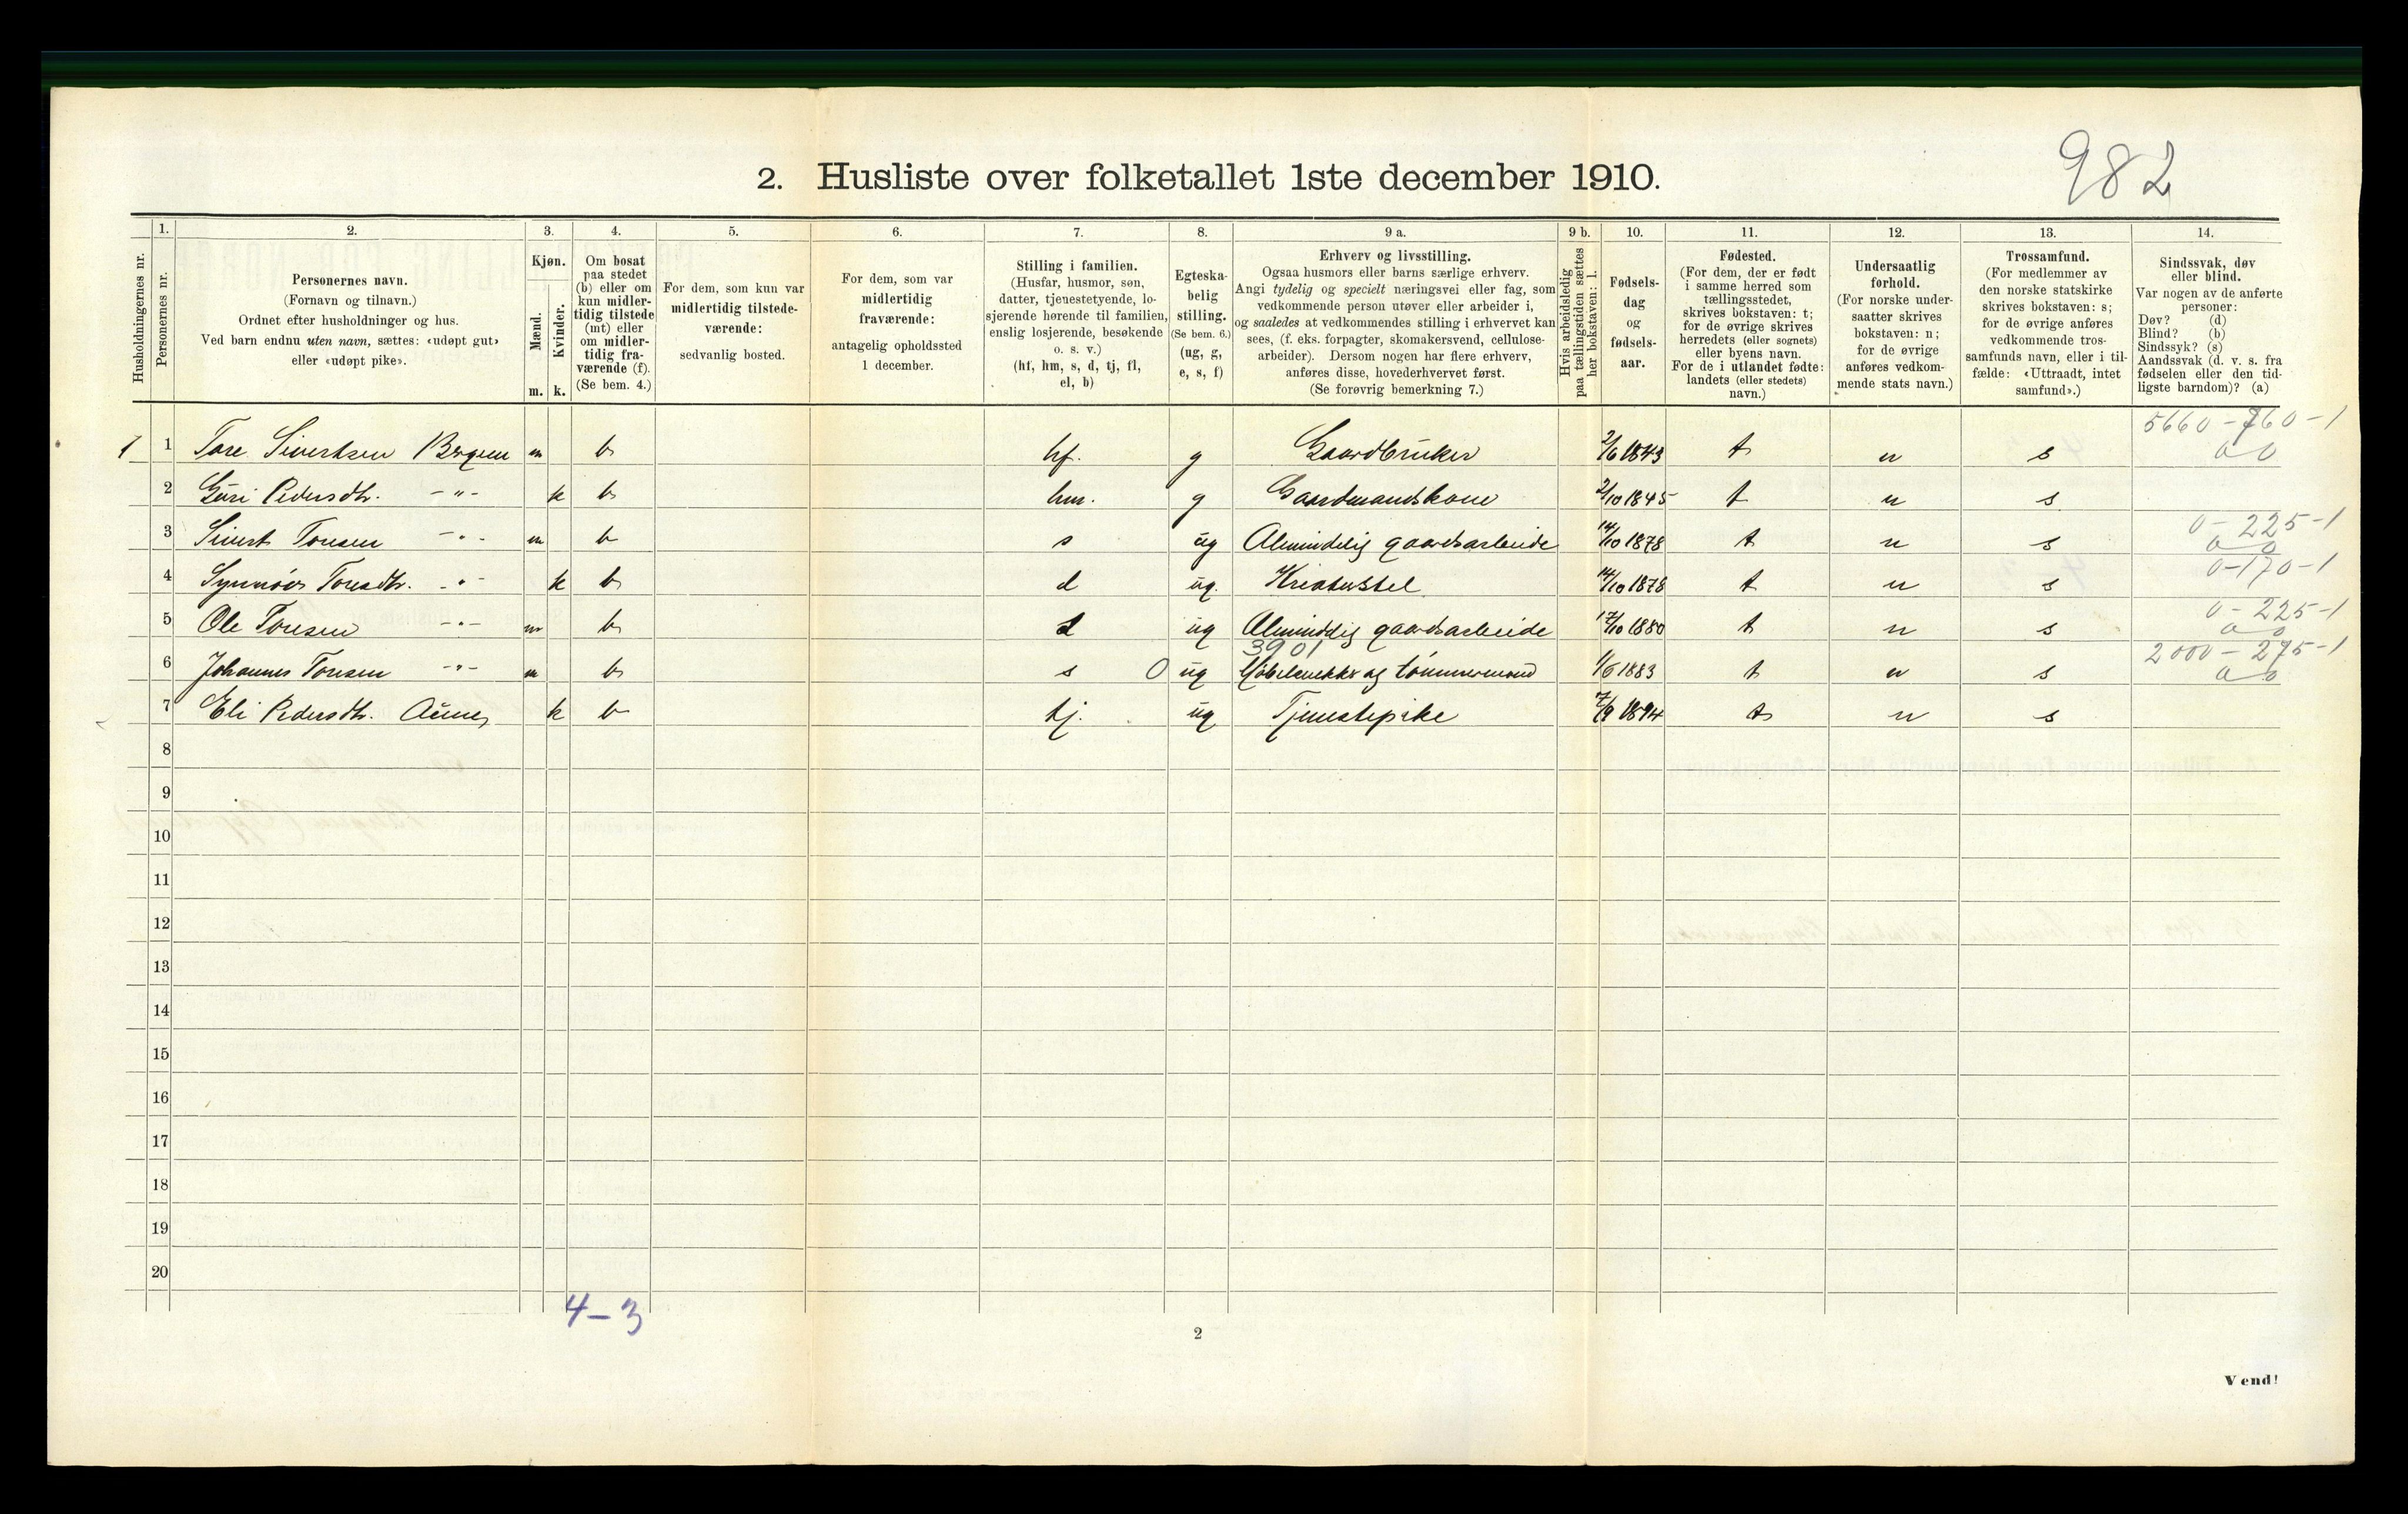 982
2. Husliste over folketallet 1ste december 1910.
Husholdningernes nr.
1.
Personernes nr.
2.
Personernes navn.
(Fornavn og tilnavn.)
Ordnet efter husholdninger og hus.
Ved barn endnu uten navn, sættes: «udøpt gut»
eller «udøpt pike».
3.
Kjøn.
Mænd.
Kvinder.
m. k.
4.
Om bosat
paa stedet
(b) eller om
kun midler-
tidig tilstede
(mt) eller
om midler-
tidig fra-
værende (f).
(Se bem. 4.)
5.
For dem, som kun var
midlertidig tilstede-
værende:
sedvanlig bosted.
6.
For dem, som var
midlertidig
fraværende:
antagelig opholdssted
1 december.
7.
Stilling i familien.
(Husfar, husmor, søn,
datter, tjenestetyende, lo-
sjerende hørende til familien,
enslig losjerende, besøkende
o. s. v.)
(hf, hm, s, d, tj, fl,
el, b)
8.
Egteska-
belig
stilling.
(Se bem. 6.)
(ug, g,
e, s, f)
9 a.
Erhverv og livsstilling.
Ogsaa husmors eller barns særlige erhverv.
Angi tydelig og specielt næringsvei eller fag, som
vedkommende person utøver eller arbeider i,
og saaledes at vedkommendes stilling i erhvervet kan
sees, (f. eks. forpagter, skomakersvend, cellulose-
arbeider). Dersom nogen har flere erhverv,
anføres disse, hovederhvervet først.
(Se forøvrig bemerkning 7.)
9 b.
Hvis arbeidsledig
paa tællingstiden sættes
her bokstaven: l.
10.
Fødsels-
dag
og
fødsels-
aar.
11.
Fødested.
(For dem, der er født
i samme herred som
tællingsstedet,
skrives bokstaven: t;
for de øvrige skrives
herredets (eller sognets)
eller byens navn.
For de i utlandet fødte:
landets (eller stedets)
navn.)
12.
Undersaatlig
forhold.
(For norske under-
saatter skrives
bokstaven: n;
for de øvrige
anføres vedkom-
mende stats navn.)
13.
Trossamfund.
(For medlemmer av
den norske statskirke
skrives bokstaven: s;
for de øvrige anføres
vedkommende tros-
samfunds navn, eller i til-
fælde: «Uttraadt, intet
samfund».)
14.
Sindssvak, døv
eller blind.
Var nogen av de anførte
personer:
Døv? (d)
Blind? (b)
Sindssyk? (s)
Aandssvak (d. v. s. fra
fødselen eller den tid-
ligste barndom)? (a)
5660-760-1
1 1 Tore Sivertsen Bergum m b hf. g Gaardbruker 2/6 1843 t n s 0 0
2 Guri Pedersdtr. -"- k b hm. g Gaardmandskone 2/10 1845 t n s
0-225-1
3 Sivert Toresen -"- m b s ug Almindelig gaardsarbeide 14/10 1878 t n s 0 0
0-170-1
4 Synnöve Toresdtr. -"- k b d ug. Kreaturstel 14/10 1878 t n s
0-225-1
5 Ole Toresen -"- m b ug Almindelig gaardsarbeide 17/10 1880 t n s 0 0
3901
2000-275-1
6 Johannes Toresen -"- m b s 0 ug Möbelsnekker og tömmermand 1/6 1883 t n s 0 0
7 Eli Pedersdtr. Aune k b tj. ug Tjenestepike 7/9 1894 t n s
8
9
10
11
12
13
14
15
16
17
18
19
20
4-3
2
Vend!